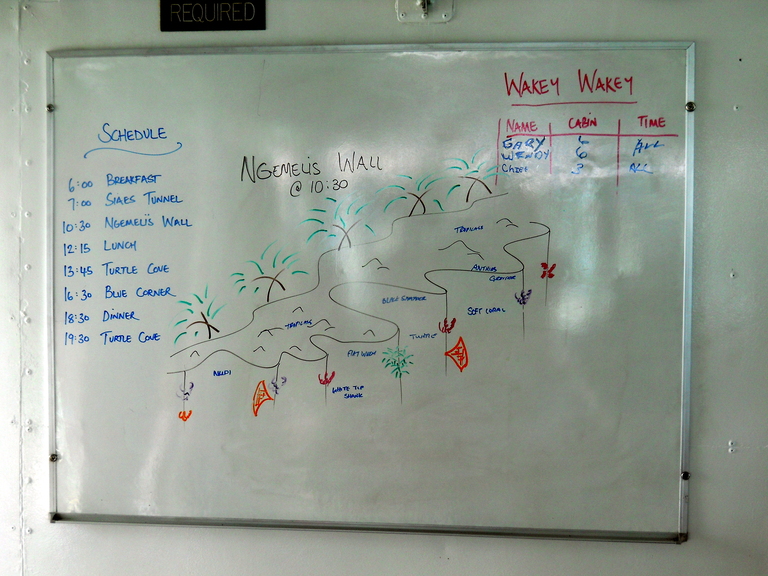 REQUIRED
WAKEY WAKEY
NAME CABIN TIME
GARY 6 ALL
WENDY 6
3 ALL
SCHEDULE
6:00 BREAKFAST
7:00 SIAES TUNNEL
10:30 NGEMELIS WALL
12:15 LUNCH
13:45 TURTLE COVE
16:30 BLUE CORNER
18:30 DINNER
19:30 TURTLE COVE
NGEMELIS WALL
@ 10:30
ANTHIAS
SOFT CORAL
TURTLE
FLAT WORM
NAPOLEON
WHITE TIP
SHARK